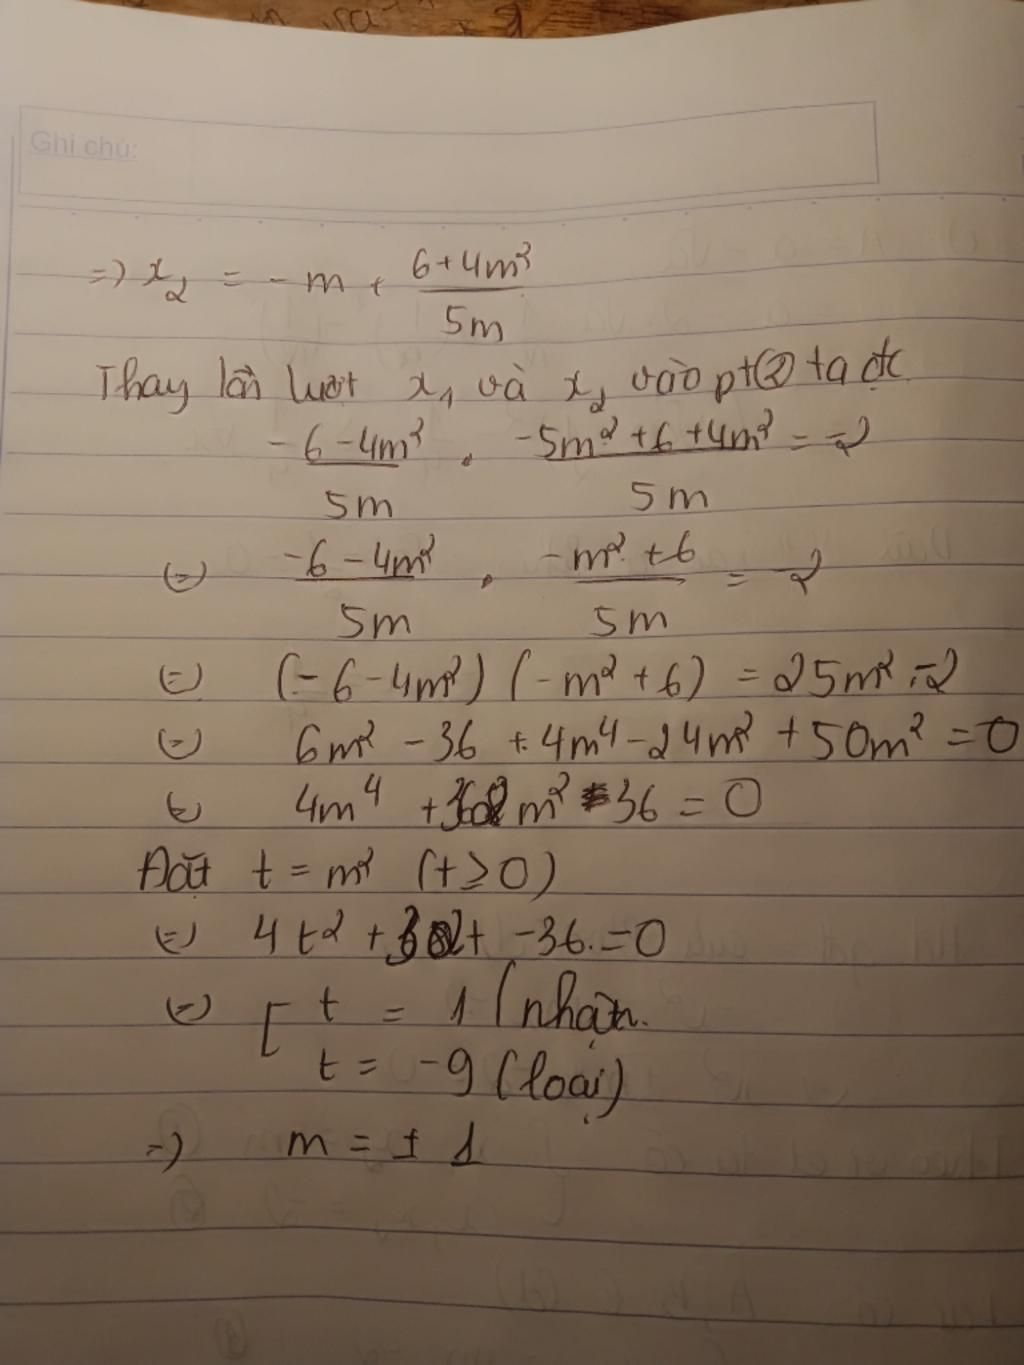 Ghi chú:
=> x₂ = - m + (6+4m²)/(5m)
Thay lần lượt x₁ và x₂ vào pt(2) ta đc
(-6-4m²)/(5m) . (-5m²+6+4m²)/(5m) = -2
(=) (-6-4m²)/(5m) . (-m²+6)/(5m) = -2
(=) (-6-4m²) (-m²+6) = 25m².-2
(=) 6m² - 36 + 4m⁴ - 24m² + 50m² = 0
(=) 4m⁴ + 32m² - 36 = 0
Đặt t = m² (t ≥ 0)
(=) 4t² + 32t - 36 = 0
(=) [ t = 1 (nhận.
t = -9 (loại)
=> m = ± 1